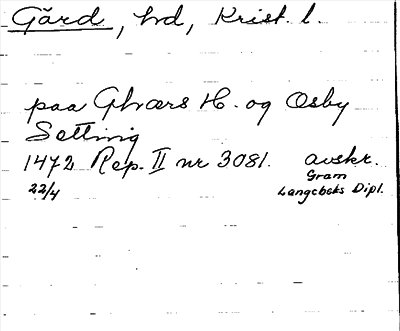 Gārd, hd, Krist. l.
paa Ghærs H. og Osby
Setting
1472 Rep. II nr 3081. avskr.
22/4 Gram
Langebeks Dipl.